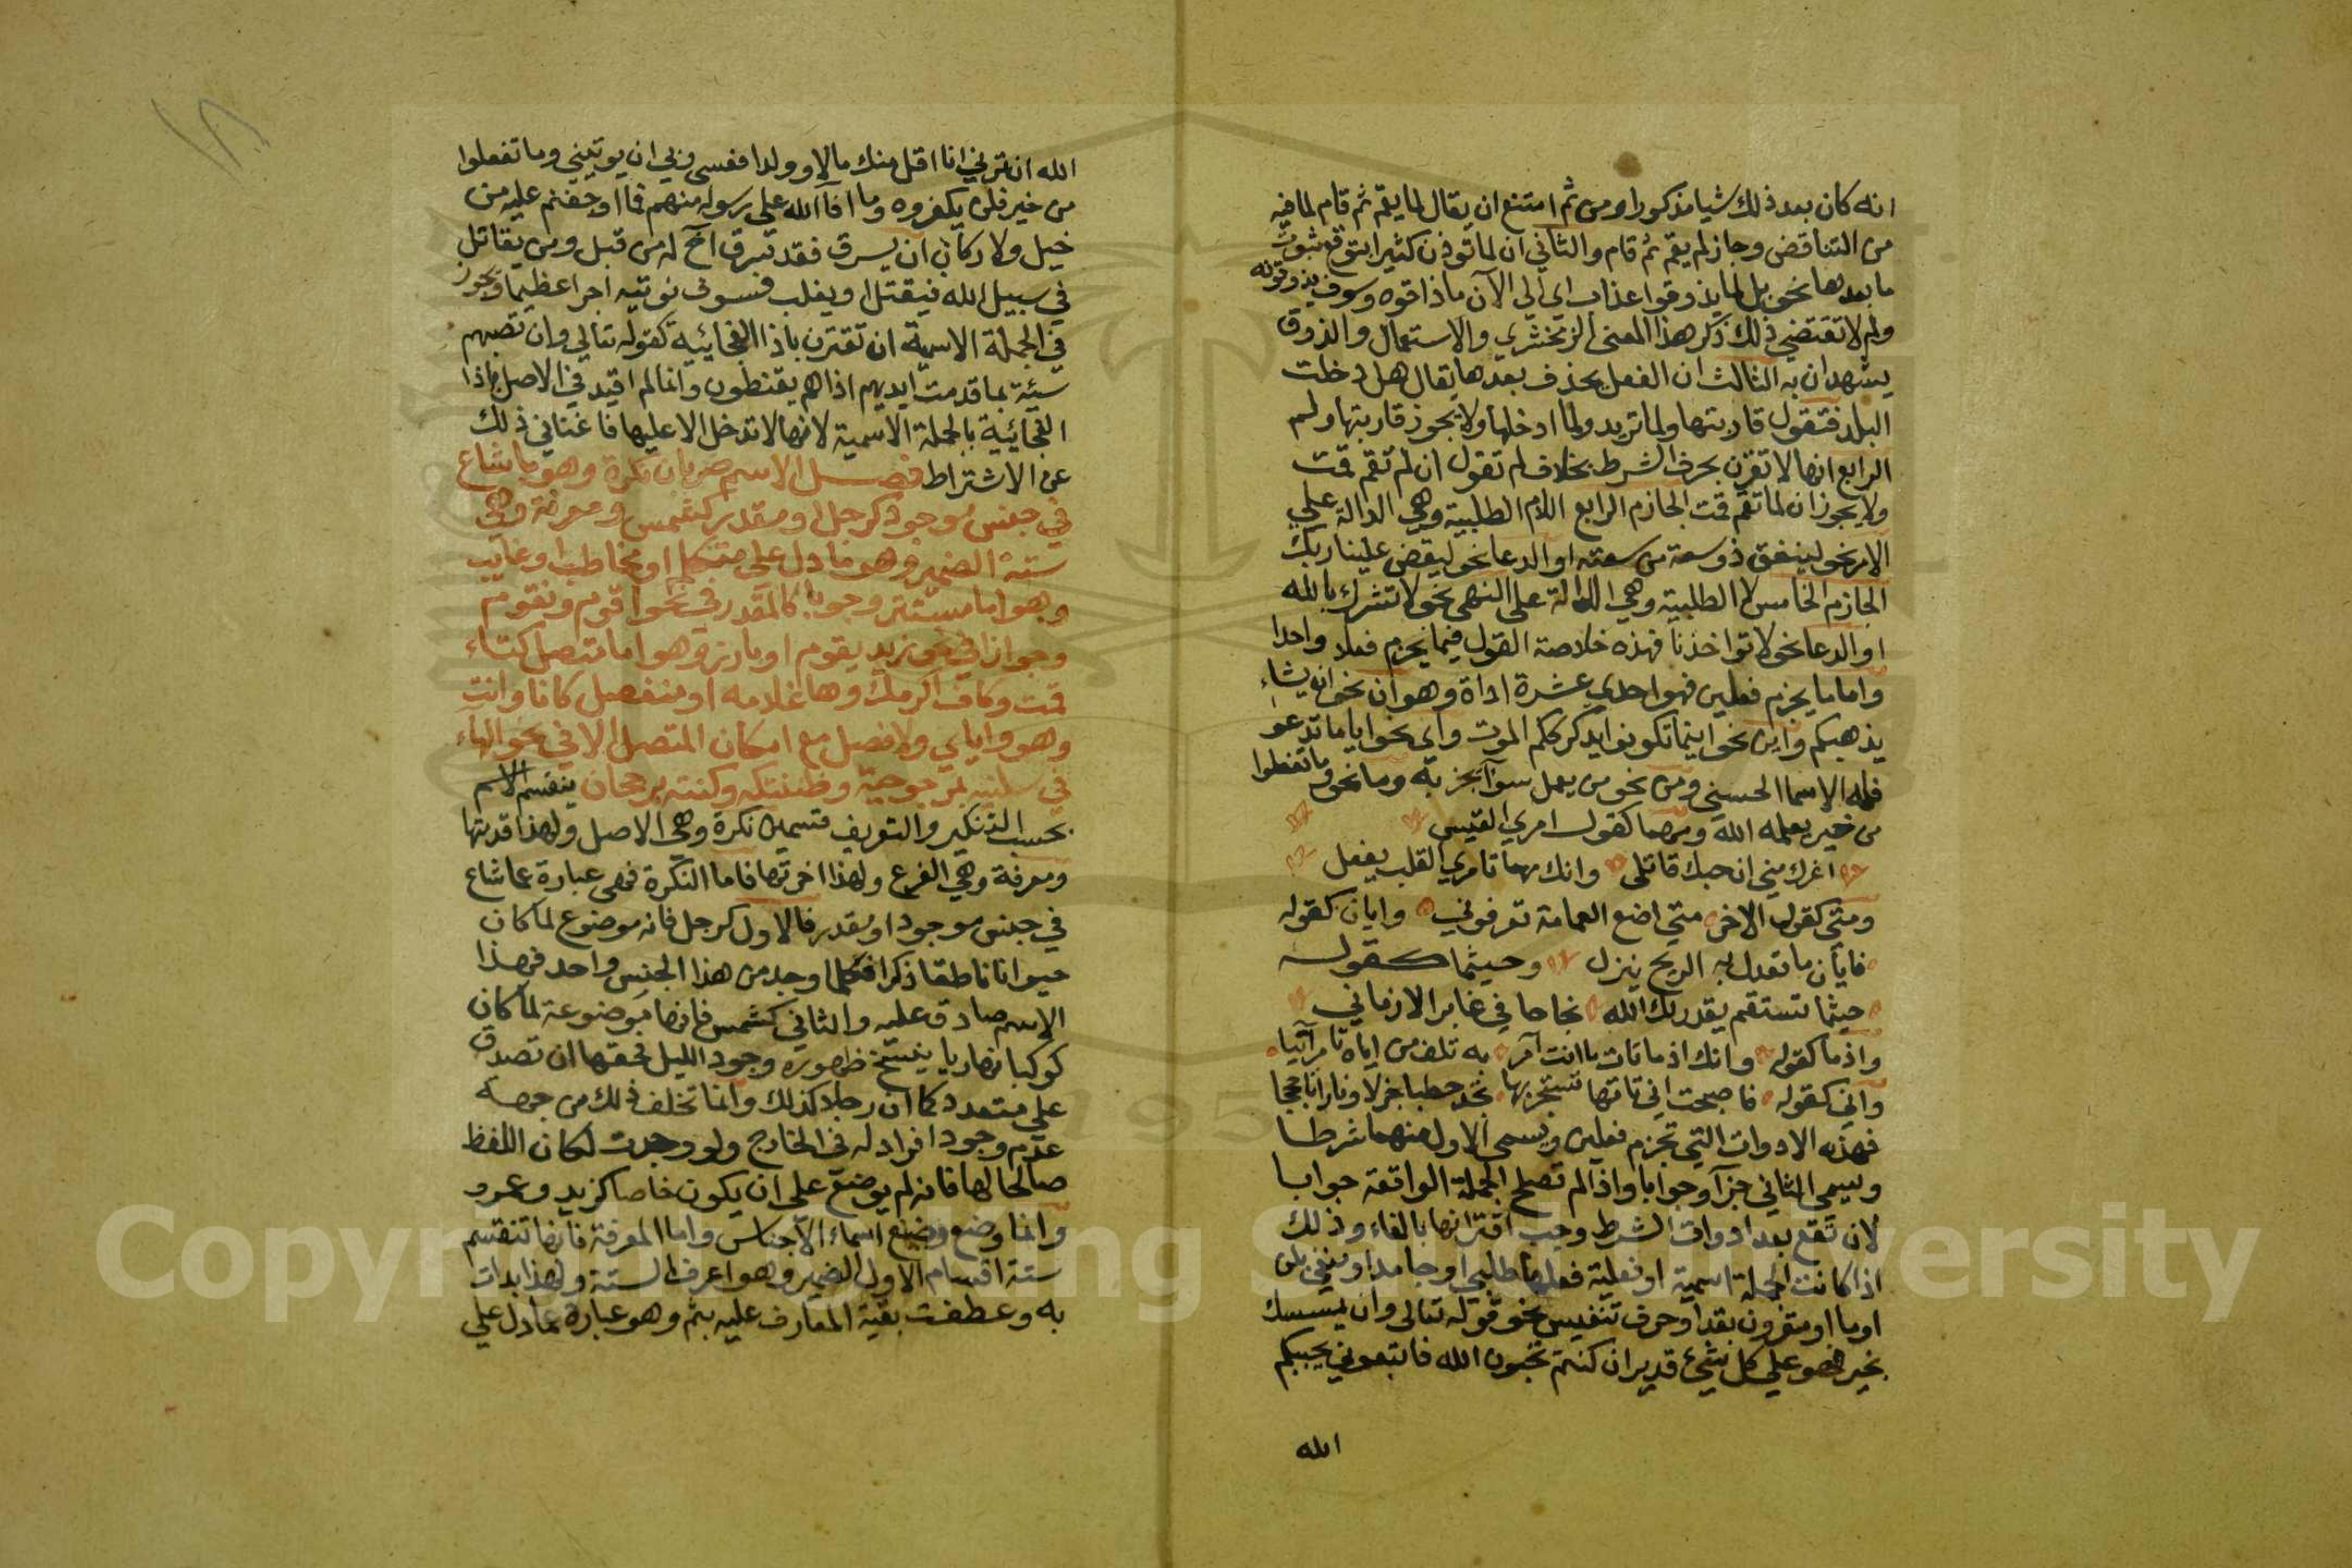 انه كان بعد ذلك شيا مذكورا ومن ثم امتنع ان يقال لما يقم ثم قام لما فيه
من التناقض وجاز لم يقم ثم قام والثاني ان لما توذن كثيرا بتوقع ثبوت
ما بعدها نحو بل لما يذوقوا عذاب اي الي الآن ما ذاقوه وسوف يذوقونه
ولم لا تقتضي ذلك ذكر هذا المعنى الزمخشري والاستعمال والذوق
يشهدان به الثالث ان الفعل يحذف بعدها يقال هل دخلت
البلد فتقول قاربتها ولما تريد ولما ادخلها ولا يجوز قاربتها ولم
الرابع انها لا تقرن بحرف الشرط بخلاف لم تقول ان لم تقم قمت
ولا يجوز ان لما تقم قمت الجازم الرابع اللام الطلبية وهي الدالة علي
الامر نحو لينفق ذو سعة من سعته او الدعا نحو ليقض علينا ربك
الجازم الخامس لا الطلبية وهي الدالة على النهي نحو لا تشرك بالله
او الدعا نحو لا تواخذنا فهذه خلاصة القول فيما يجزم فعلا واحدا
واما ما يجزم فعلين فهو احدي عشرة اداة وهو ان نحو ان يشاء
يذهبكم واين نحو اينما تكونوا يدرككم الموت واي نحو ايا ما تدعو
فله الاسما الحسني ومن نحو من يعمل سوآ يجز به وما نحو وما تفعلوا
من خير يعلمه الله ومهما كقول امري القيس
اغرك مني ان حبك قاتلى وانك مهما تامري القلب يفعل
ومتى كقول الاخر متي اضع العمامة تعرفوني وايان كقوله
فايأن ما تعدل به الريح ينزل وحيثما كقوله
حيثما تستقم يقدر لك الله نجاحا في غابر الازماني
واذما كقوله وانك اذما تات ما انت آمر به تلف من اياه تامر آتيا
واني كقوله فاصبحت اني تاتها تستجر بها تجد حطبا جزلا ونارا تاججا
فهذه الادوات التي تجزم فعلين ويسمى الاول منهما شرطا
ويسمي الثاني جزآ وجوابا واذا لم تصلح الجملة الواقعة جوابا
لان تقع بعد ادوات الشرط وجب اقترانها بالفاء وذلك
اذا كانت الجملة اسمية او فعلية فعلها طلبي او جامد او منفي بلن
او ما او مقرون بقد او حرف تنفيس نحو قوله تعالى وان يمسسك
بخير فهو علي كل شيء قدير ان كنتم تحبون الله فاتبعوني يحببكم
الله
الله ان ترني انا اقل منك مالا وولدا فعسى ربي ان يوتيني وما تفعلوا
من خير فلن يكفروه وما افآ الله على رسوله منهم فما اوجفتم عليه من
خيل ولا ركاب ان يسرق فقد سرق اخ له من قبل ومن يقاتل
في سبيل الله فيقتل او يغلب فسوف نوتيه اجرا عظيما ويجوز
في الجملة الاسمية ان تقترن باذا الفجائية كقوله تعالي وان تصبهم
سيئة بما قدمت ايديهم اذا هم يقنطون وانما لم اقيد في الاصل باذا
الفجائية بالجملة الاسمية لانها لا تدخل الا عليها فاغناني ذلك
عن الاشتراط فصل الاسم ضربان نكرة وهو ما شاع
في جنس موجود كرجل او مقدر كشمس ومعرفة وهي
ستة الضمير وهو ما دل على متكلم او مخاطب او غايب
وهو اما مستتر وجوبا كالمقدر في نحو اقوم ونقوم
وجوازا في نحو زيد يقوم او بارز وهو اما متصل كتاء
قمت وكاف اكرمك وهاء غلامه او منفصل كانا وانت
وهو واياي ولا فصل مع امكان المتصل الا في نحو الهاء
في سلنيه بمرجوحية وظننتكه وكنته برجحان ينقسم الاسم
بحسب التنكير والتعريف قسمين نكرة وهي الاصل ولهذا قدمتها
ومعرفة وهي الفرع ولهذا اخرتها فاما النكرة فهي عبارة عما شاع
في جنس موجود او مقدر فالاول كرجل فانه موضوع لما كان
حيوانا ناطقا ذكرا فكلما وجد من هذا الجنس واحد فهذا
الاسم صادق عليه والثاني كشمس فانها موضوعة لما كان
كوكبا نهاريا ينسخ ظهوره وجود الليل فحقها ان تصدق
علي متعدد كما ان رجلا كذلك وانما تخلف ذلك من جهة
عدم وجود افراد له في الخارج ولو وجدت لكان اللفظ
صالحا لها فانه لم يوضع على ان يكون خاصا كزيد وعمرو
وانما وضع وضع اسماء الاجناس واما المعرفة فانها تنقسم
ستة اقسام الاول الضمير وهو اعرف الستة ولهذا بدات
به وعطفت بقية المعارف عليه بثم وهو عبارة عما دل علي
Copyright © King Saud University
1957